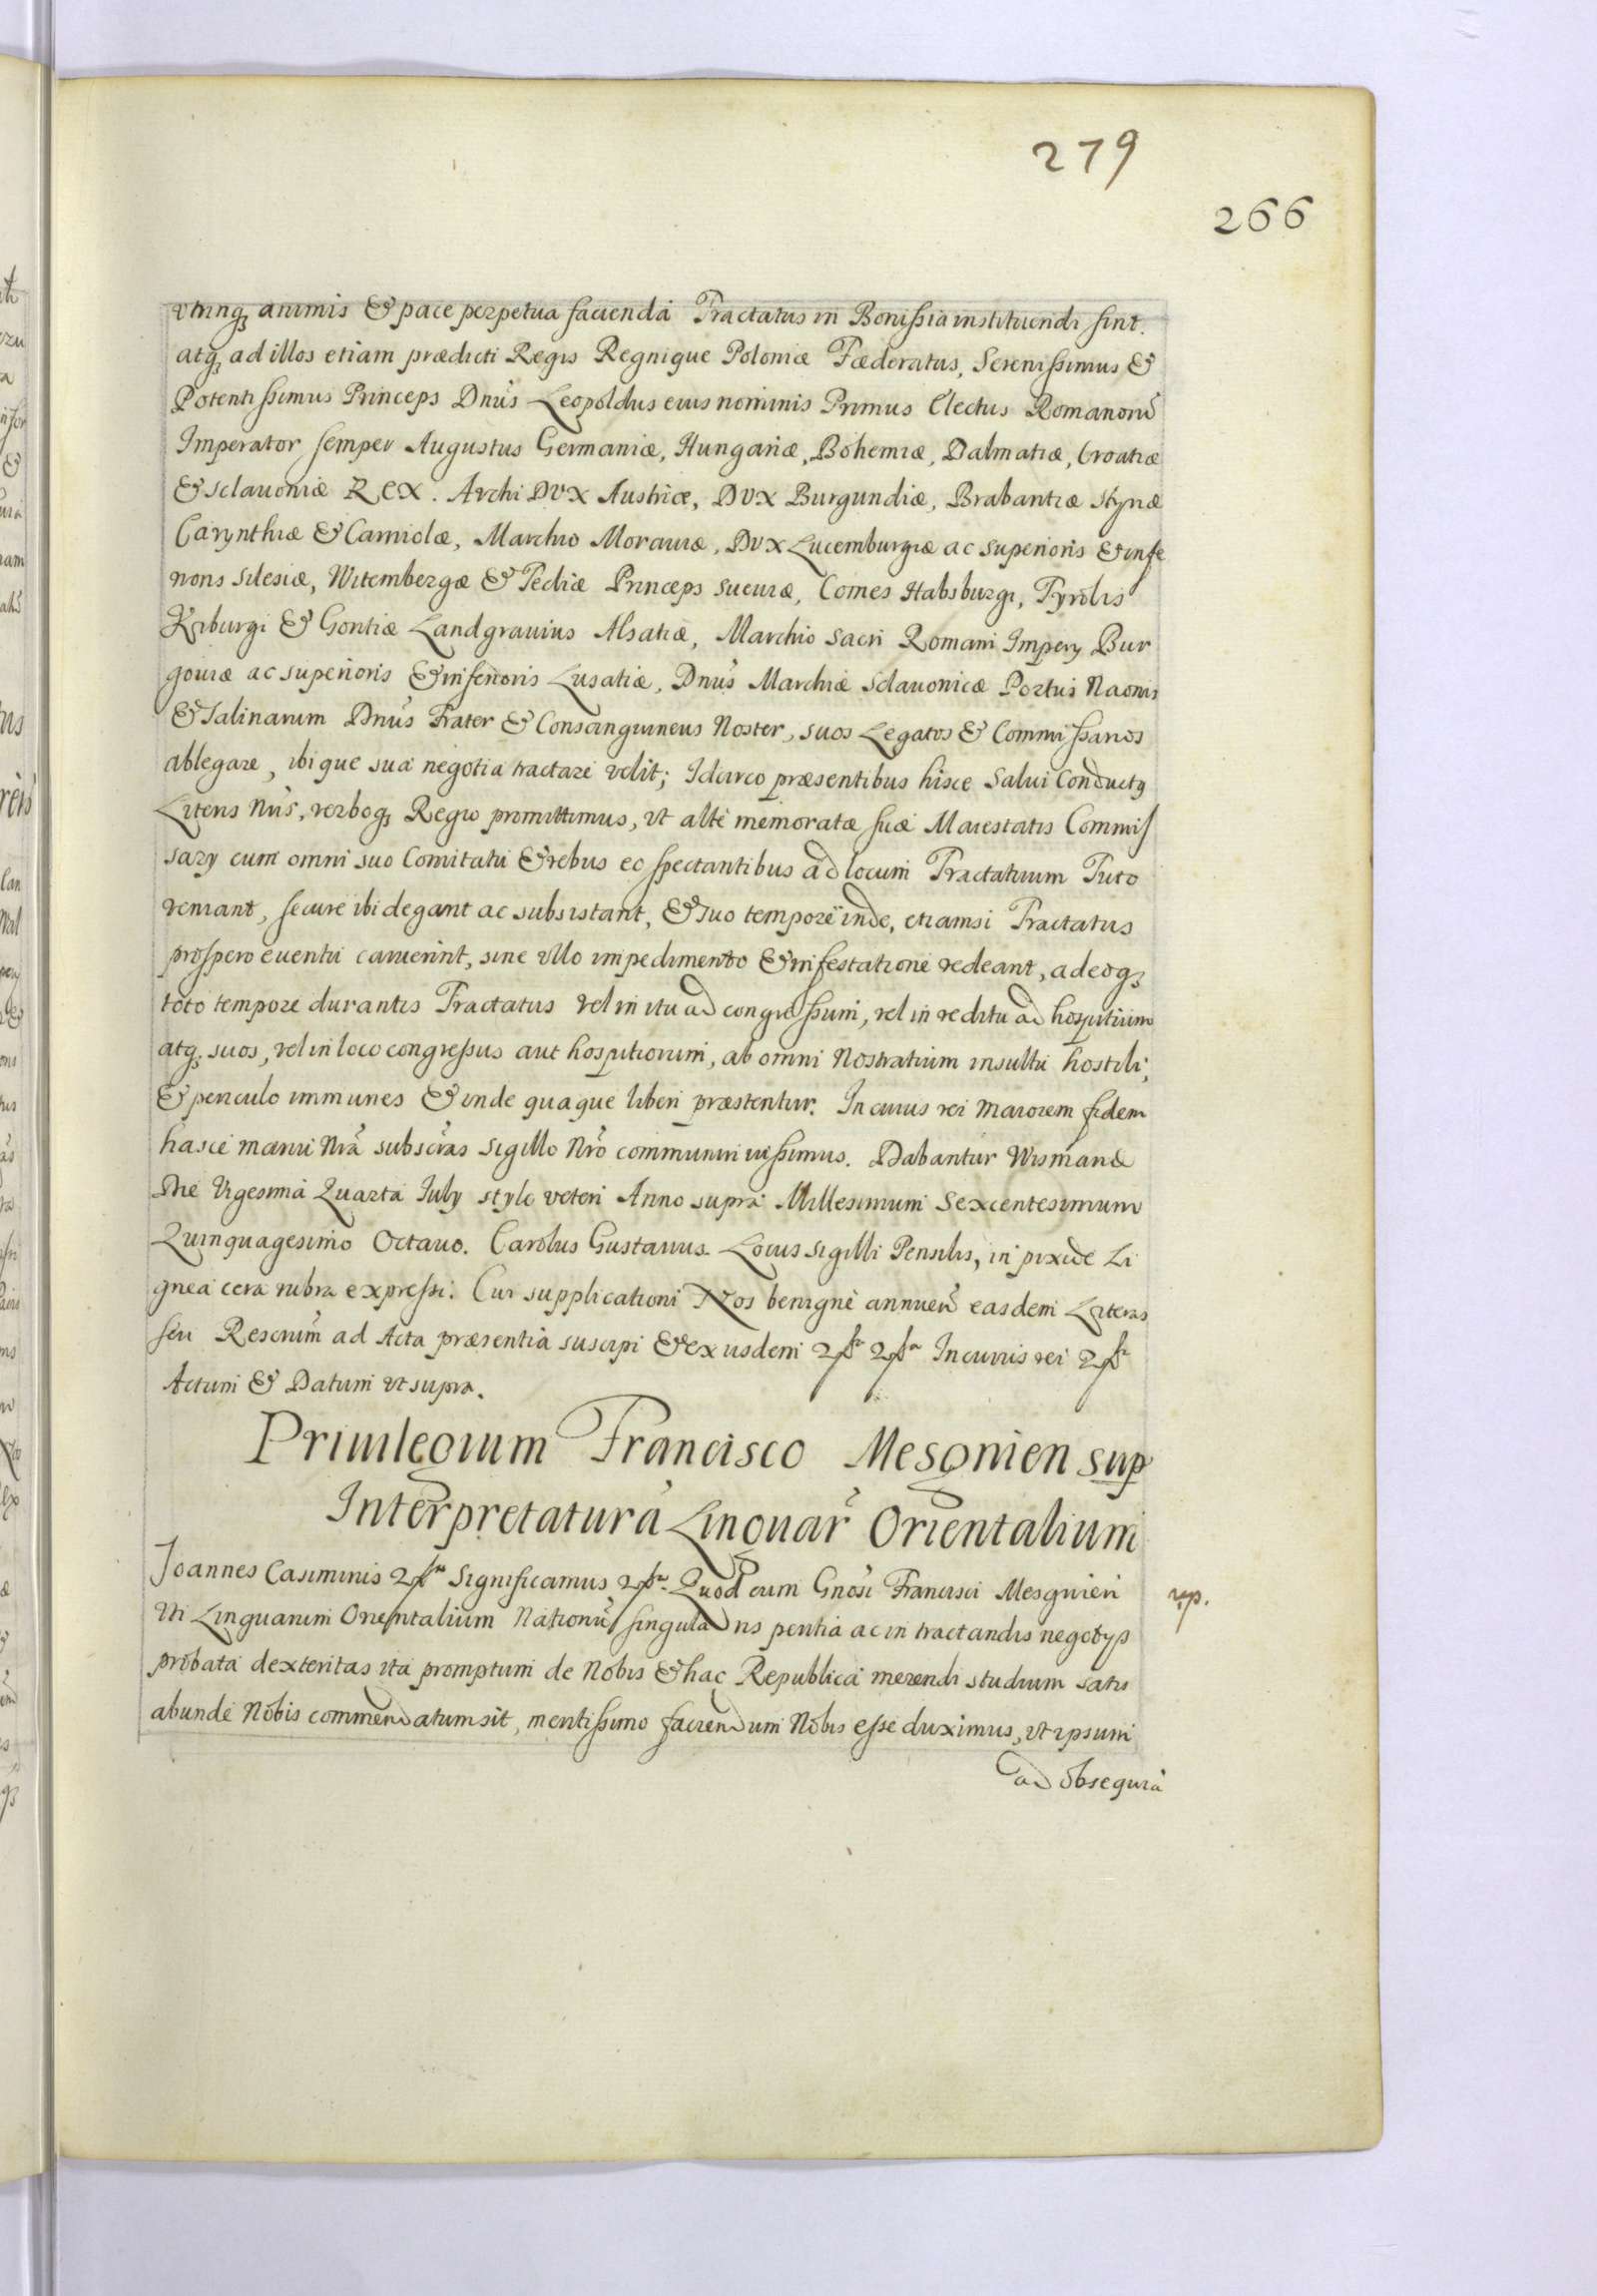 279
266
vtrinq₃ animis & pace perpetua facienda Tractatus in Borußia instituendi sint.
atq₃ ad illos etiam prædicti Regis Regnique Poloniæ Fæderatus, Serenissimus &
Potentissimus Princeps Dnus Leopoldus eius nominis Primus Electus Romanorũ
Imperator semper Augustus Germaniæ, Hungariæ, Bohemiæ, Dalmatiæ, Croatiæ
& Sclauoniæ Rex. Archi Dvx Austriæ, Dvx Burgundiæ, Brabantiæ Styriæ
Carynthiæ & Carniolæ, Marchio Morauiæ, Dvx Lucemburgiæ ac Superioris & infe
rioris Silesiæ, Witembergæ & Teckæ Princeps Sueuiæ, Comes Habsburgi, Tyrolis
Kiburgi & Goritiæ Landgrauius Alsatiæ, Marchio Sacri Romani Impery Bur
gouiæ ac superioris & inferioris Lusatiæ, Dnus Marchiæ Sclauonicæ Portus Naonis
& Salinarum Dnus Frater & Consanguineus Noster, suos Legatos & Commissarios
ablegare, ibique sua negotia tractare velit; Idcirco præsentibus hisce Salui Conductg
Literis Nris, verboq₃ Regio promittimus, vt alte memoratæ suæ Maiestatis Commis
sary cum omni suo Comitatu & rebus eo spectantibus ad locum Tractatuum Tuto
veniant, secure ibi degant ac subsistant, & suo tempore inde, etiamsi Tractatus
prospero euentu caruerint, sine vllo impedimento & infestatione redeant, adeoq₃
toto tempore durantis Tractatus vel in itu ad congressum, vel in reditu ad hospitium
atq₃ suos, vel in loco congressus aut hospitiorum, ab omni Nostratium insultu hostili,
& periculo immunes & inde quaque liberi præstentur. In cuius rei maiorem fidem
hasce manu Nrã subscras Sigillo Nrõ communiri iussimus. Dabantur Wismariæ
Die Vigesima Quarta Iuly stylo veteri Anno supra Millesimum Sexcentesimum
Quinquagesimo Octauo. Carolus Gustauus. Locus sigilli Pensilis, in pixide Li
gnea cera rubra expressi. Cui supplicationi Nos benigne annuen̄ easdem Literas
seu Rescrum̄ ad Acta præsentia suscipi & ex ijsdem In cuius rei
Actum & Datum vt supra.
Priuilegium Francisco Mesgnien sup
Interpretatura Linguar̃ Orientalium
Joannes Casimirus Significamus Quod cum Gnosi Francisci Mesgnien
Vti Linguarum Orientalium Nationũ singularis peritia ac in tractandis negotys
probata dexteritas ita promptum de Nobis & hac Republica merendi studium satis
abunde Nobis commendatum sit, meritissimo faciendum Nobis esse duximus, vt ipsum
ad obsequia